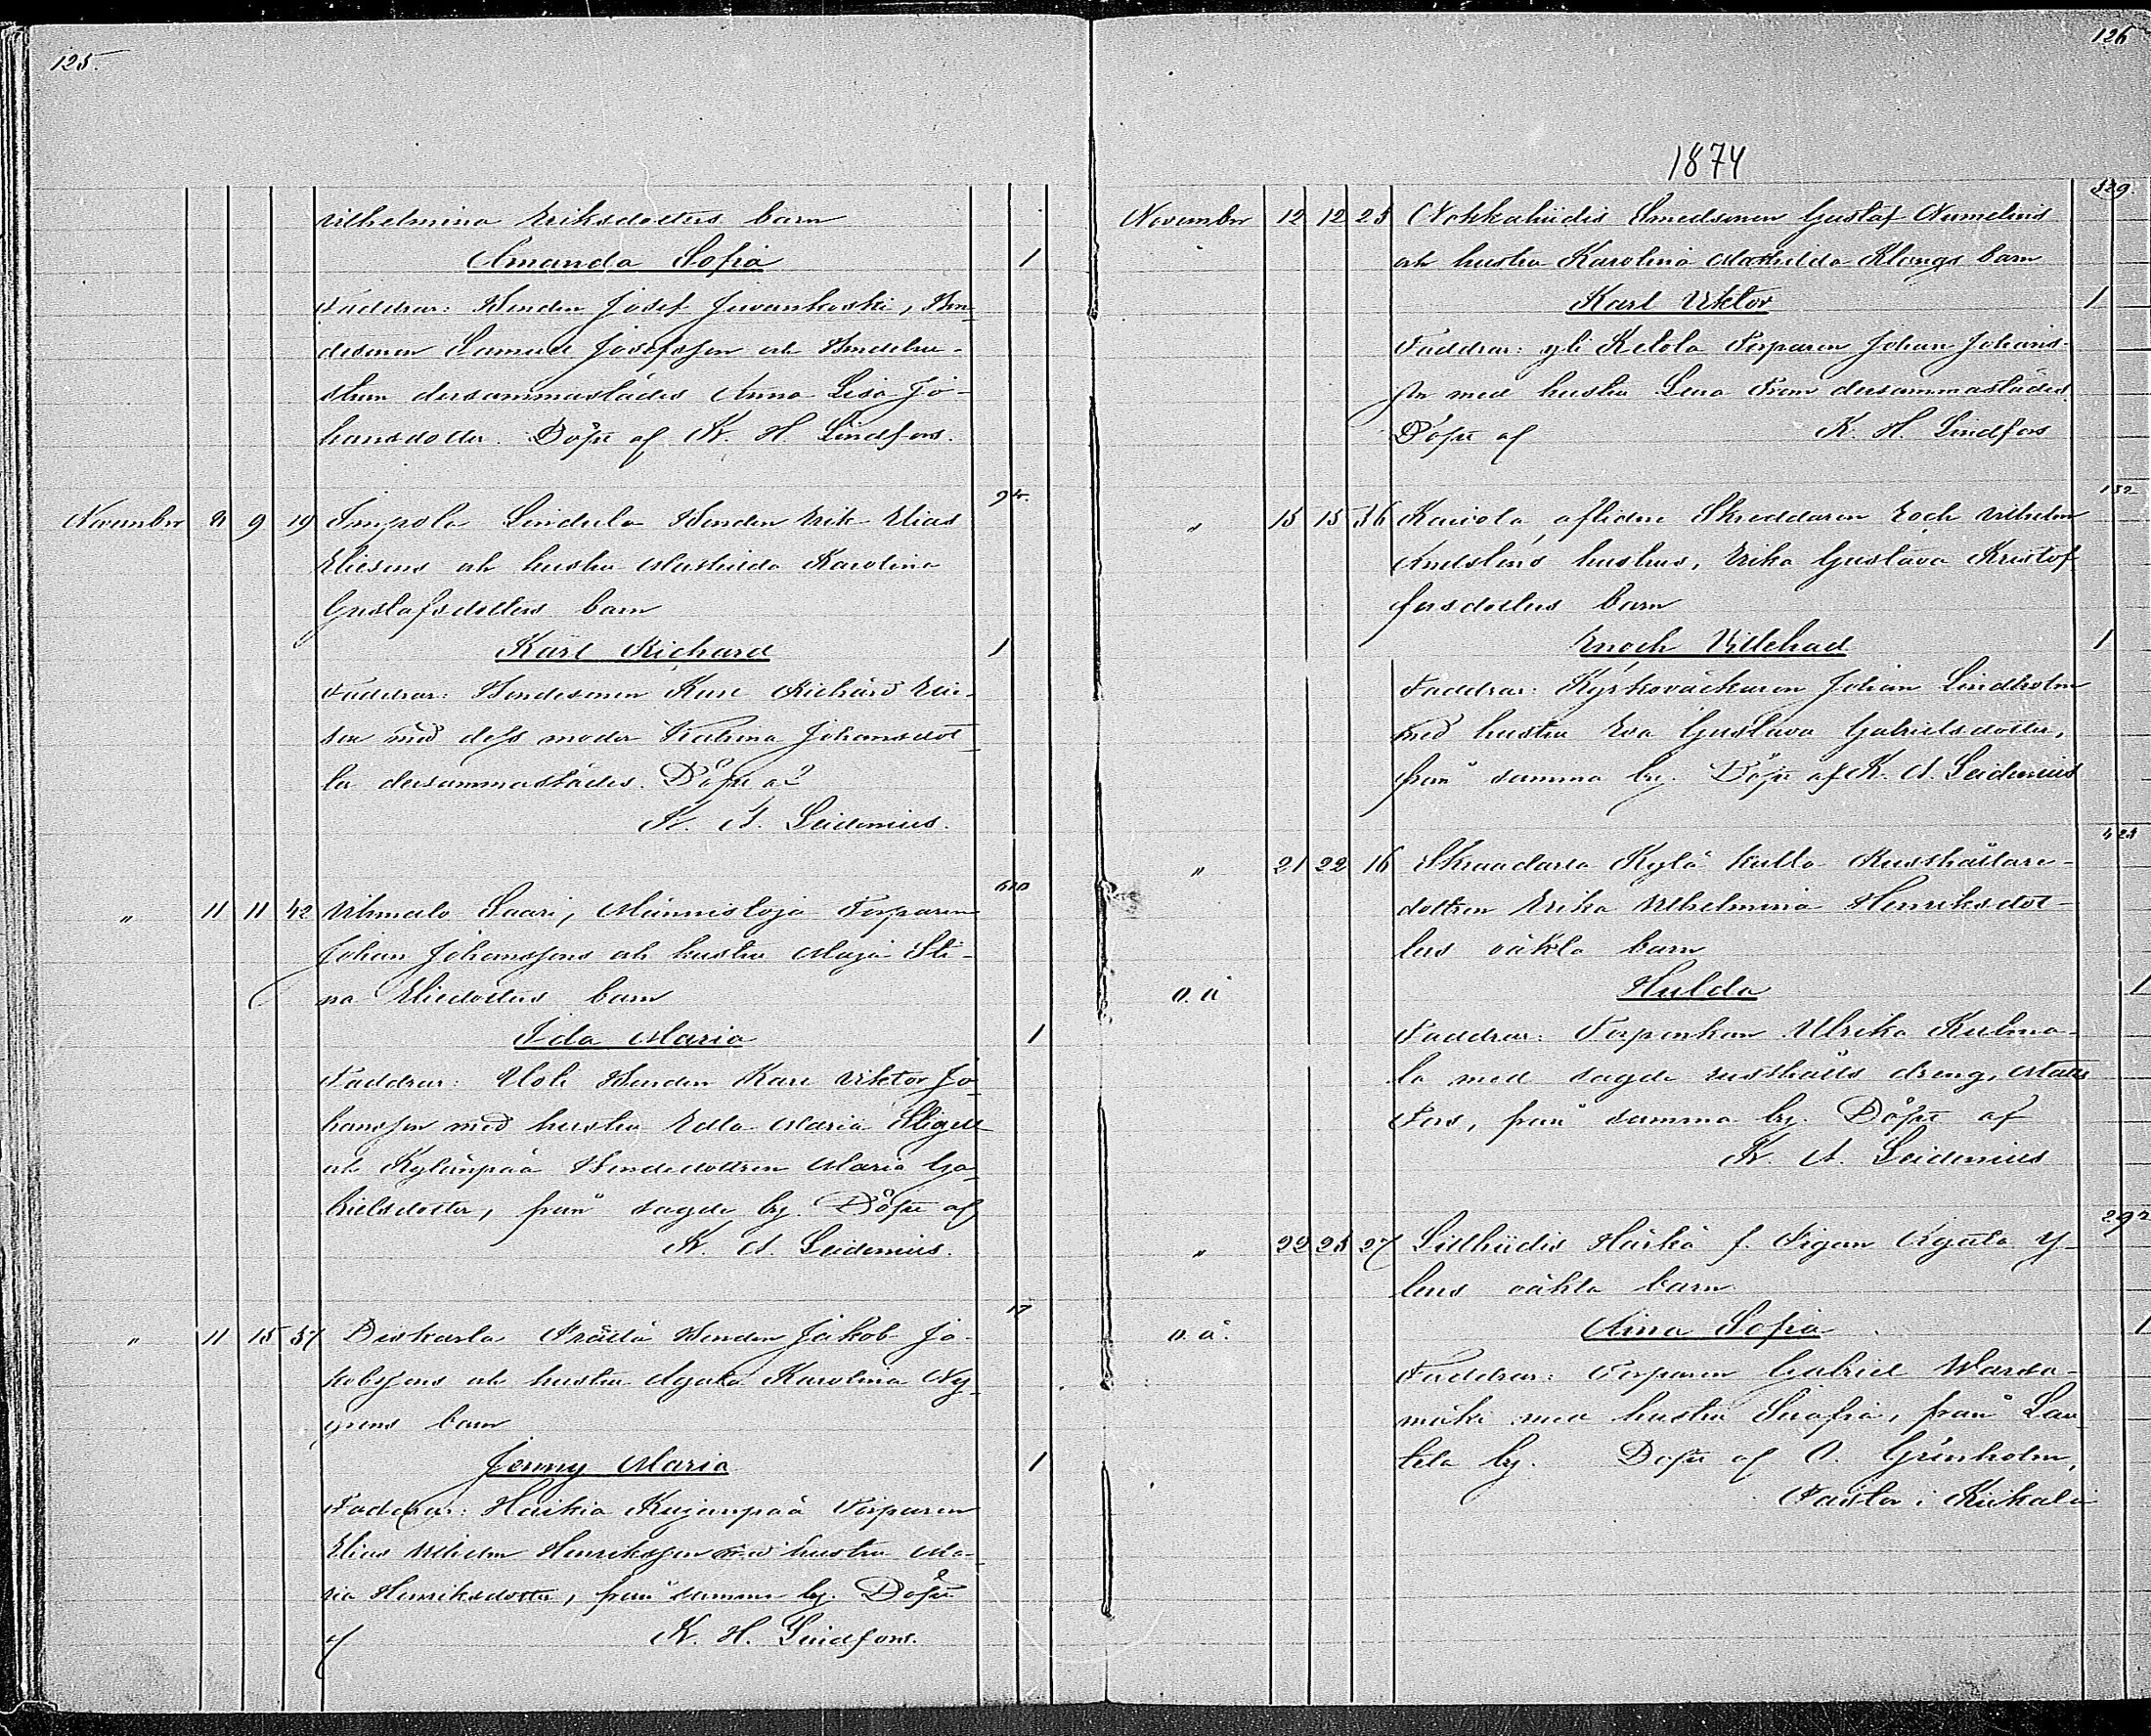 125.
Vilhelmina Eriksdotters barn
Amanda Sofia 1
Faddrar: Bonden Josef Juvankoski, Bon-
desonen Samuel Josefsson och Bondehu-
strun dersammastädes Anna Lisa Jo-
hansdotter. Döpt af K. H. Lindfors.
94.
November 8 9 19 Impola Lindula Bonden Erik Elias
Eliesens och hustru Mathilda Karolina
Gustafsdotters barn
Karl Richard 1
Faddrar: Bondesonen Karl Richard Elie-
sen med dess moder Katrina Johansdot-
ter dersammastädes. Döpt af
K. A. Leidenius.
" 11 11 42 Saari, Männistöja Torparen
Johan Johanssons och hustru Maja Sti-
na Eliedotters barn
Ida Maria 1
Faddrar: Uoti Bonden Karl Viktor Jo-
hansson med hustru Edla Maria
och Kylänpää Bondedottren Maria Ga-
brielsdotter, från sagde by. Döpt af
K. A. Leidenius.
17
" 11 15 37 Diskarla Prättä Bonden Jakob Ja-
kobssons och hustru Agata Karolina Ny-
grens barn
Jenny Maria 1
Faddrar: Haikia Kujanpää Torparen
Elias Vilhelm Henriksson med hustru Ma-
ria Henriksdotter, från samma by. Döpt
af K. H. Lindfors.
126
1874
329.
November 12 12 25 Nohkahiidis Smedsonen Gustaf Numelins
och hustru Karolina Mathilda Klangs barn
Karl Viktor 1
Faddrar: yli Ketola Torparen Johan Johans-
son med hustru Lena From dersammastädes.
Döpt af K. H. Lindfors
132
" 15 15 36 Kaivola, aflidne Skreddaren Enoch Vilhelm
hustrus, Erika Gustava Kristof
fersdotters barn
Enoch Villehad 1
Faddrar: Kyrkoväktaren Johan Lindholm
med hustru Eva Gustava Gabrielsdotter,
från samma by. Döpt af K. A. Leidenius
424
" 21 22 16 Skraadarla Kylä kulla Rusthållare-
dottren Erika Vilhelmina Henriksdot-
ters oäkta barn
o. ä Hulda 1
Faddrar: Torpenkan Ulrika Kulma-
la med sagde rusthålls dreng, Matts
Fors, från samma by. Döpt af
K. A. Leidenius
292
" 22 25 27 Lillhiidis Härkä f. Pigan Agata Y-
lens oäkta barn
o. ä. Aina Sofia 1
Faddrar: Torparen Gabriel Warsa-
mäki med hustru Serafia, från Lau-
tela by. Döpt af O. Grönholm,
Pastor i Kiikala